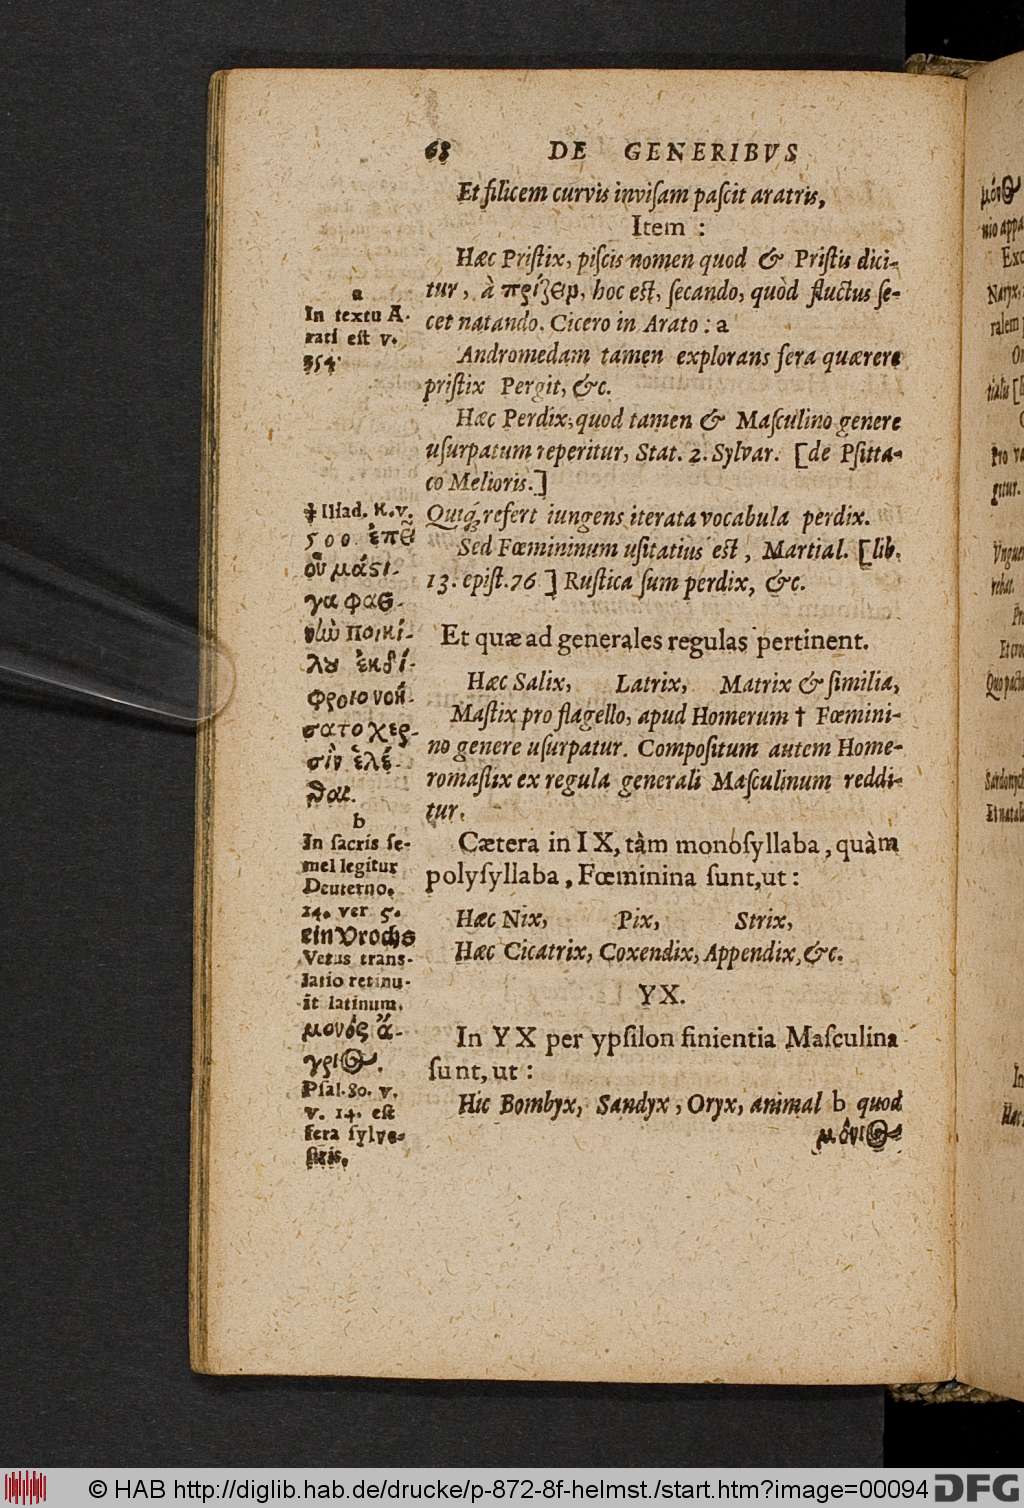 68 DE GENERIBVS
Et filicem curvis inviſam paſcit aratris,
Item :
Hæc Priſtix, piſcis nomen quod & Priſtis dici-
tur, à πρίζειν, hoc eſt, ſecando, quòd fluctus ſe-
cet natando. Cicero in Arato : a
Andromedam tamen explorans fera quærere
priſtix Pergit, &c.
Hæc Perdix, quod tamen & Maſculino genere
uſurpatum reperitur, Stat. 2. Sylvar. [de Pſitta-
co Melioris.]
Quiq́; refert iungens iterata vocabula perdix.
Sed Fœmininum uſitatius eſt, Martial. [lib.
13. epiſt. 76 ] Ruſtica ſum perdix, &c.
Et quæ ad generales regulas pertinent.
Hæc Salix, Latrix, Matrix & ſimilia,
Maſtix pro flagello, apud Homerum † Fœmini-
no genere uſurpatur. Compoſitum autem Home-
romaſtix ex regula generali Maſculinum reddi-
tur.
Cætera in IX, tàm monoſyllaba, quàm
polyſyllaba, Fœminina ſunt, ut :
Hæc Nix, Pix, Strix,
Hæc Cicatrix, Coxendix, Appendix, &c.
YX.
In YX per ypſilon finientia Maſculina
ſunt, ut :
Hic Bombyx, Sandyx, Oryx, animal b quod
μόνι
a
In textu A-
rati eſt v.
354.
‡ Iliad. κ. v.
500. ἐπεὶ
οὐ μάςι-
γα φαει-
νὼ ποικί-
λου ἐκ δί-
φροιο νοή-
σατο χερ-
σὶν ἑλέ-
ϑαι.
b
In ſacris ſe-
mel legitur
Deuterno.
14. ver 5.
ein Vrochs
Vetus trans-
latio retinu-
it latinum.
μονὸς ἄ-
γριος.
Pſal. 80. v.
v. 14. eſt
fera ſylve-
ſtris.
© HAB http://diglib.hab.de/drucke/p-872-8f-helmst./start.htm?image=00094 DFG